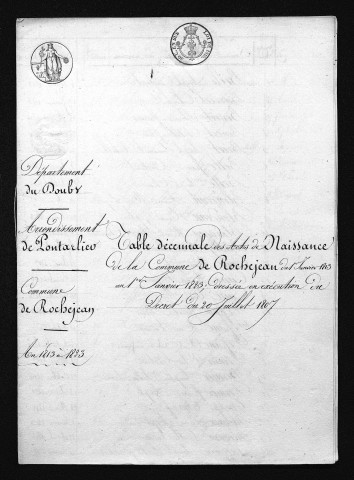 Département
du Doubs
Arrondissement
de Pontarlier
Commune
de Rochejean
An 1813 à 1823
Table décennale des Actes de Naissance
de la Commune de Rochejean du 1er Janvier 1813
au 1er Janvier 1823, dressée en exécution du
Décret du 20 Juillet 1807